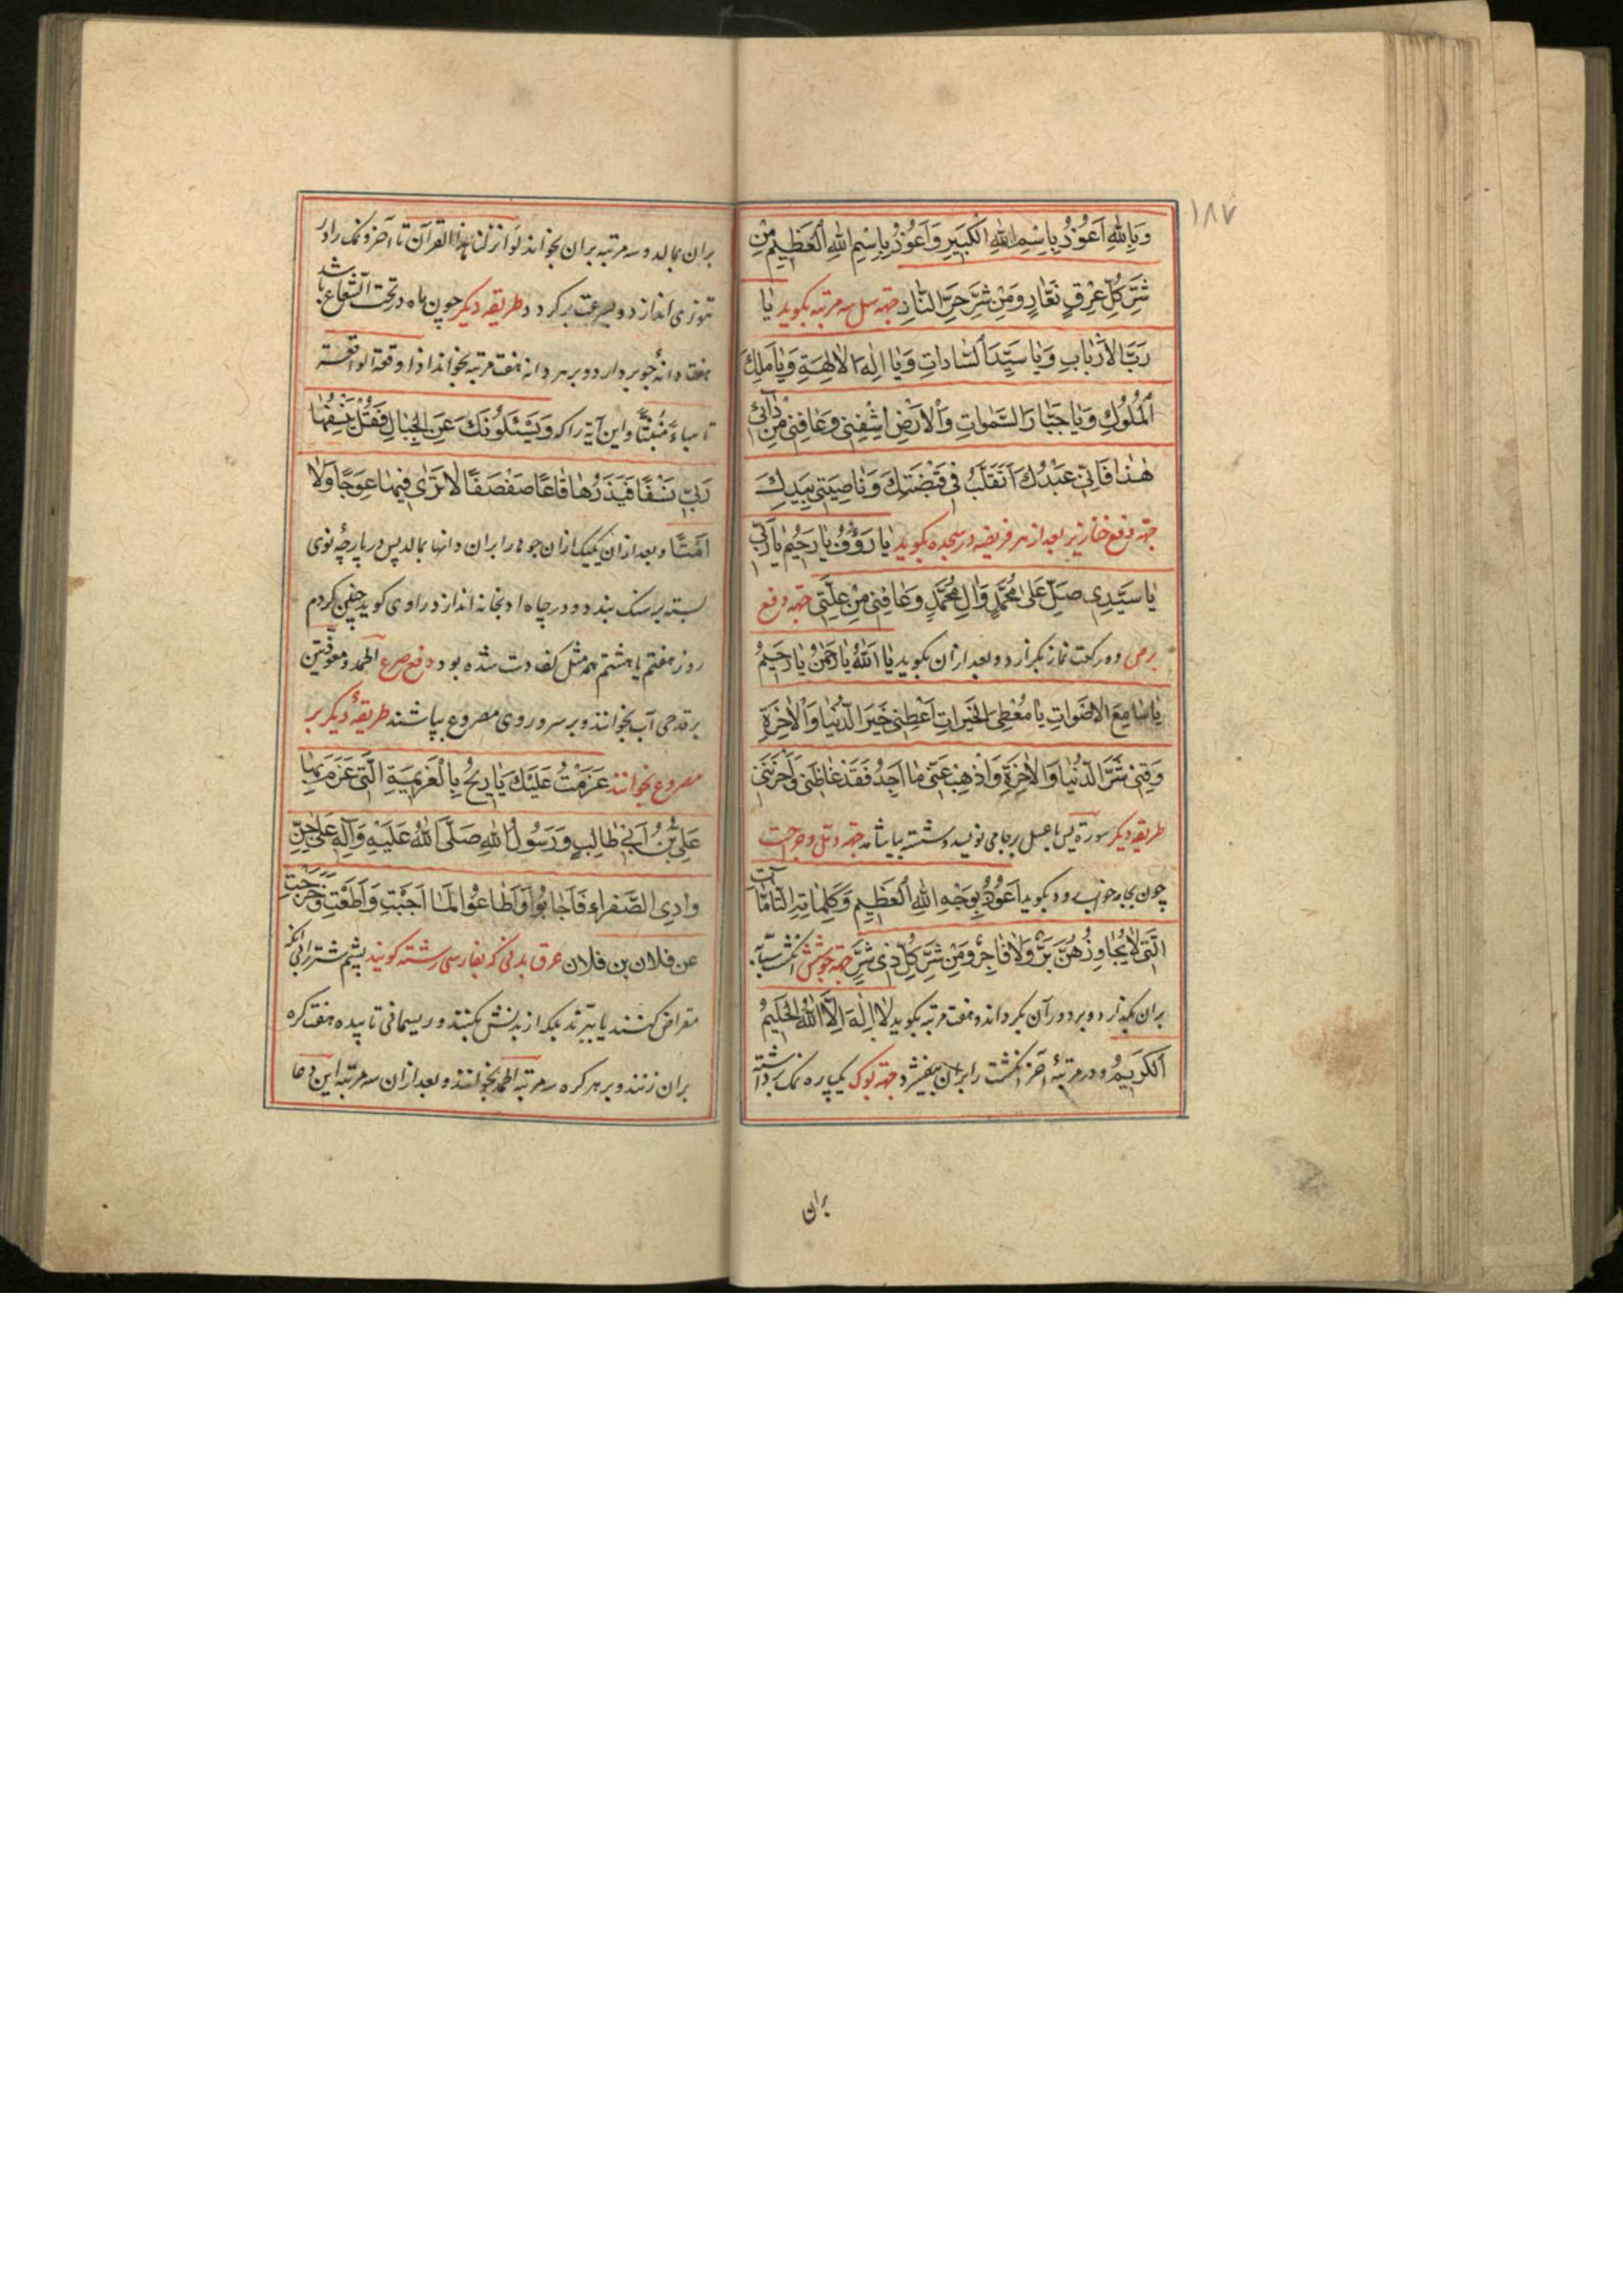 ١٨٧
وَبِاللّٰهِ اَعُوذُ بِاِسْمِ اللّٰهِ الْكَبِيرِ وَاَعُوذُ بِاِسْمِ اللّٰهِ الْعَظِيمِ مِنْ
شَرِّ كُلِّ عِرْقٍ نَعّارٍ وَمِنْ شَرِّ حَرِّ النّارِ جهة سل سه مرتبه بكويد يا
رَبَّ الْاَرْبابِ وَيا سَيِّدَ السّاداتِ وَيا اِلٰهَ الْاٰلِهَةِ وَيا مَلِكَ
الْمُلُوكِ وَيا جَبّارَ السَّمٰواتِ وَالْاَرْضِ اشْفِنى وَعافِنى مِنْ دائى
هٰذا فَاِنّى عَبْدُكَ اَتَقَلَّبُ فى قَبْضَتِكَ وَناصِيَتى بِيَدِكَ
جهة دفع خنازير بعد از هر فريضه در سجده بكويد يا رَؤُفُ يا رَحيمُ يا رَبّ
يا سَيِّدى صَلِّ عَلى مُحَمَّدٍ وَاٰلِ مُحَمَّدٍ وَعافِنى مِنْ عِلَّتى جهة دفع
برص دو ركعت نماز بكزارد و بعد از ان بكويد يا اَللّٰهُ يا رَحْمٰنُ يا رَحيمُ
يا سامِعَ الْاَصْواتِ يا مُعْطِىَ الْخَيْراتِ اَعْطِنى خَيْرَ الدُّنْيا وَالْاٰخِرَةِ
وَقِنى شَرَّ الدُّنْيا وَالْاٰخِرَةِ وَاَذْهِبْ عَنّى ما اَجِدُ فَقَدْ غاظَنى وَاَحْزَنَنى
طريقه ديكر سورة يس با عسل بر جامى نويسد و شسته بياشامد جهة دمل و جراحت
چون بجامه خواب رود بكويد اَعُوذُ بِوَجْهِ اللّٰهِ الْعَظيمِ وَكَلِماتِهِ التّامّاتِ
الَّتى لا يُجاوِزُهُنَّ بَرٌّ وَلا فاجِرٌ وَمِنْ شَرِّ كُلِّ ذى شَرٍّ جهة جوشش انكشت سبّابه
بران بكذارد و بر دور آن بكرداند و هفت مرتبه بكويد لا اِلٰهَ اِلَّا اللّٰهُ الْحَليمُ
الْكَريمُ و در مرتبۀ آخر انكشت را بران بيفشرد جهة كوك يكپاره نمك برداشته
بران
بران بمالد و سه مرتبه بران بخواند لو انزلنا هذا القرآن تا آخر و نمك را در
تنورى اندازد و بسرعت بركردد و طريقه ديكر چون ماه در تحت الشعاع باشد
هفت دانه جو بردارد و بر هر دانه هفت مرتبه بخواند اذا وقعة الواقعة
تا هباءً مُنْبَثًّا و اين آية را كه وَيَسْئَلُونَكَ عَنِ الْجِبالِ فَقُلْ يَنْسِفُها
رَبّى نَسْفًا فَيَذَرُها قاعًا صَفْصَفًا لا تَرٰى فيها عِوَجًا وَلا
اَمْتًا و بعد از ان يكيك از ان جوها را بران دانها بمالد پس در پارچۀ نوى
بسته بر سنك بندد و در چاه ادبخانه اندازد راوى كويد چنين كردم
روز هفتم يا هشتم هم مثل كف دست شده بود دفع صرع الحمد و معوّذتين
بر قدحى آب بخوانند و بر سر و روى مصروع بپاشند طريقۀ ديكر بر
مصروع بخوانند عَزَمْتُ عَلَيْكَ يا ريحُ بِالْعَزيمَةِ الَّتى عَزَمَ بِها
عَلِىُّ بْنُ اَبى طالِبٍ وَرَسُولُ اللّٰهِ صَلَّى اللّٰهُ عَلَيْهِ وَآلِهِ عَلى جِنِّ
وادِى الصَّفْراءِ فَاَجابُوا وَاَطاعُوا لَمّا اَجَبْتِ وَاَطَعْتِ وَخَرَجْتِ
عن فلان بن فلان عرق بدنى كه بفارسى رشته كويند پشم شتر را بى آنكه
مقراض كنند يا ببرند بلكه از بدنش بكنند و ريسمانى تابيده هفت كره
بران زنند و بر هر كره سه مرتبه الحمد بخوانند و بعد از ان سه مرتبه اين دعا